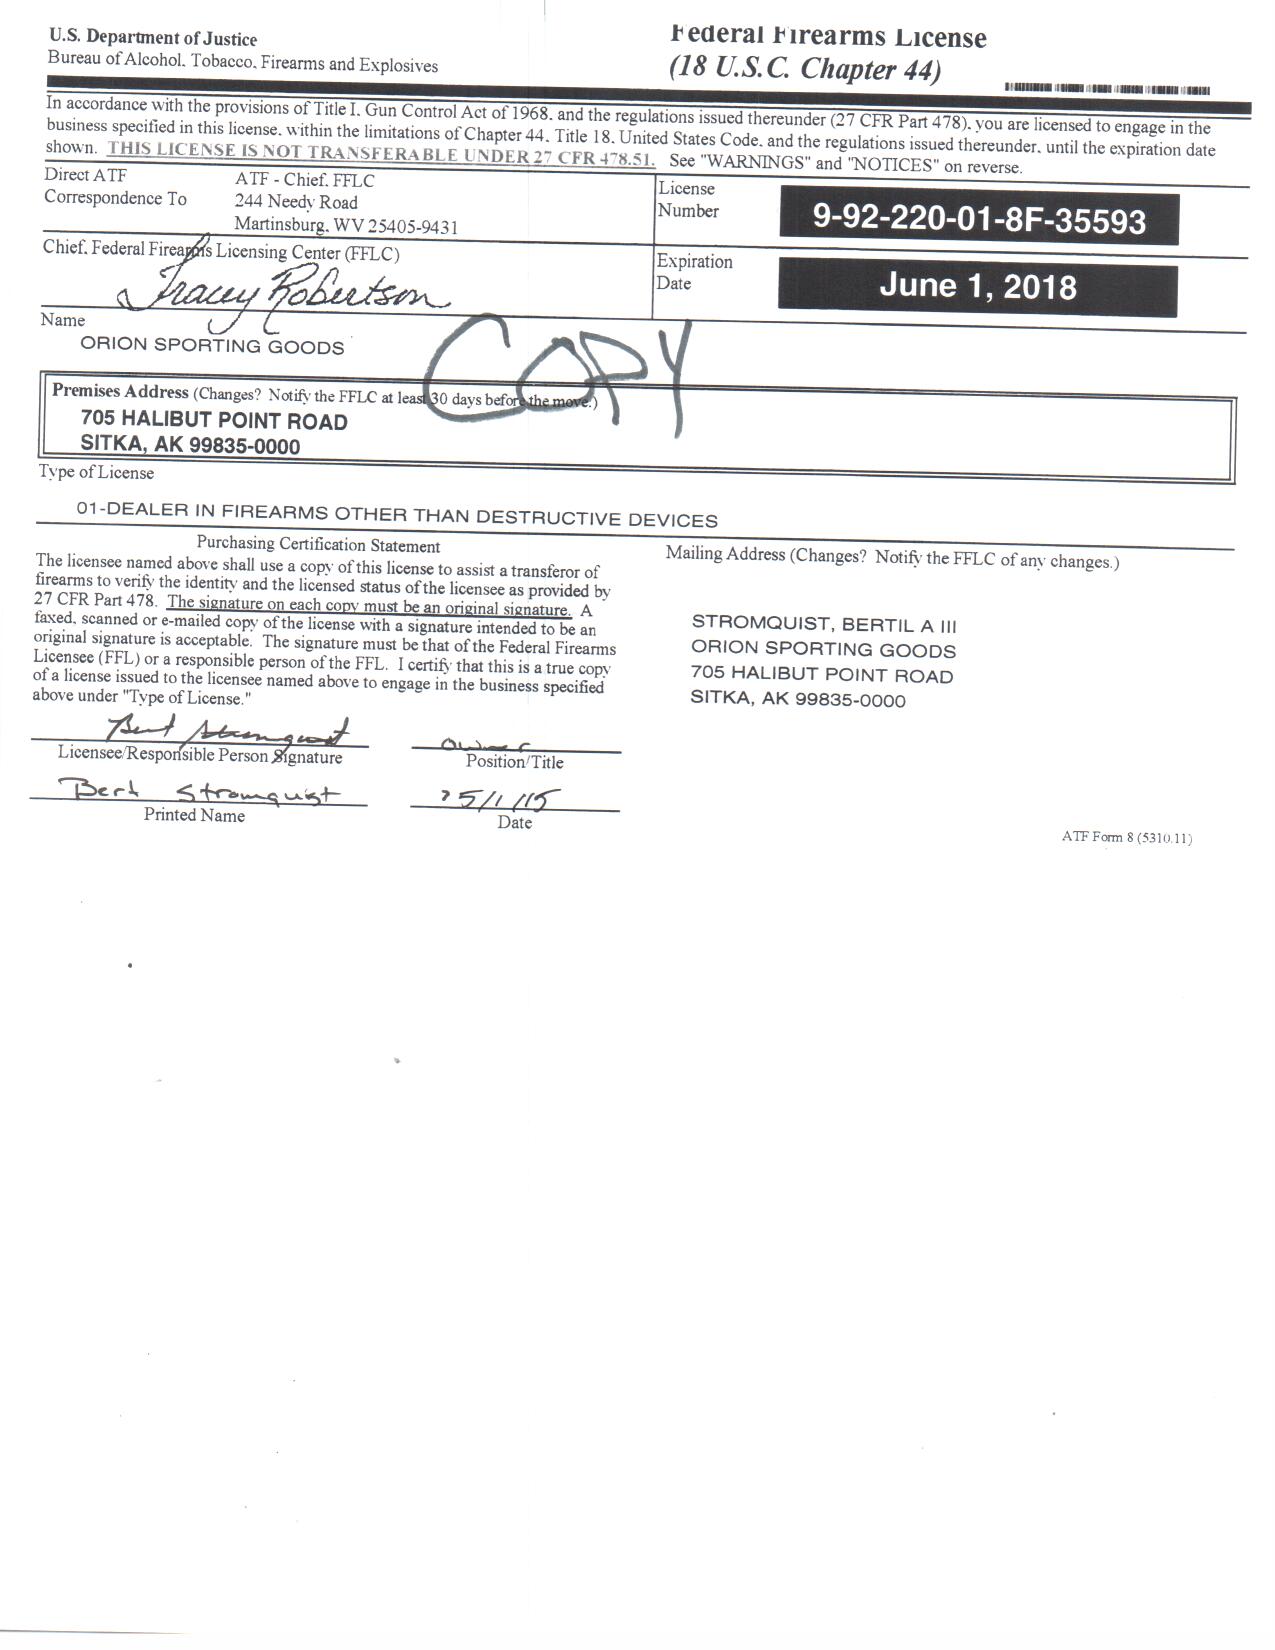 U.S. Department of Justice
Bureau of Alcohol, Tobacco, Firearms and Explosives
Federal Firearms License
(18 U.S.C. Chapter 44)
In accordance with the provisions of Title I, Gun Control Act of 1968, and the regulations issued thereunder (27 CFR Part 478), you are licensed to engage in the
business specified in this license, within the limitations of Chapter 44, Title 18, United States Code, and the regulations issued thereunder, until the expiration date
shown. THIS LICENSE IS NOT TRANSFERABLE UNDER 27 CFR 478.51. See "WARNINGS" and "NOTICES" on reverse.
Direct ATF
Correspondence To
ATF - Chief, FFLC
244 Needy Road
Martinsburg, WV 25405-9431
License
Number
9-92-220-01-8F-35593
Chief, Federal Firearms Licensing Center (FFLC)
Tracey Robertson
Expiration
Date
June 1, 2018
Name
ORION SPORTING GOODS
COPY
Premises Address (Changes? Notify the FFLC at least 30 days before the move.)
705 HALIBUT POINT ROAD
SITKA, AK 99835-0000
Type of License
01-DEALER IN FIREARMS OTHER THAN DESTRUCTIVE DEVICES
Purchasing Certification Statement
The licensee named above shall use a copy of this license to assist a transferor of
firearms to verify the identity and the licensed status of the licensee as provided by
27 CFR Part 478. The signature on each copy must be an original signature. A
faxed, scanned or e-mailed copy of the license with a signature intended to be an
original signature is acceptable. The signature must be that of the Federal Firearms
Licensee (FFL) or a responsible person of the FFL. I certify that this is a true copy
of a license issued to the licensee named above to engage in the business specified
above under "Type of License."
Bert Stromquist
Licensee/Responsible Person Signature
owner
Position/Title
Bert Stromquist
Printed Name
5/1/15
Date
Mailing Address (Changes? Notify the FFLC of any changes.)
STROMQUIST, BERTIL A III
ORION SPORTING GOODS
705 HALIBUT POINT ROAD
SITKA, AK 99835-0000
ATF Form 8 (5310.11)